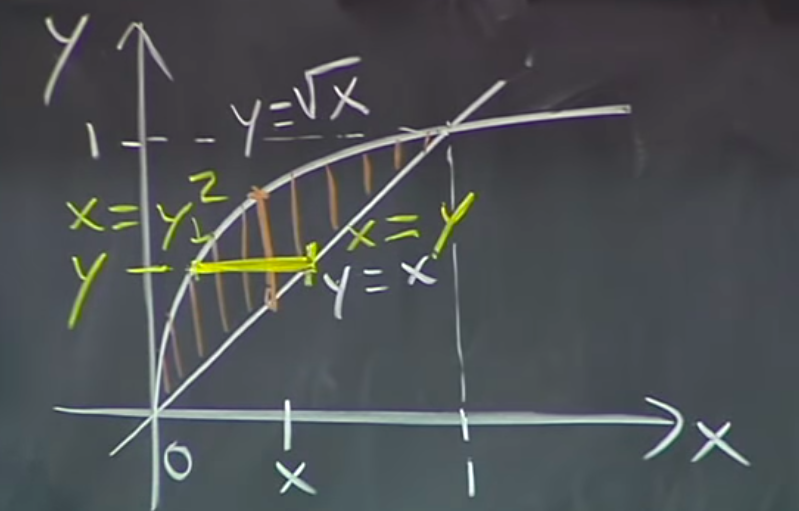 y
y=√x
1
x=y²
x=y
y
y=x
x
0
x
1